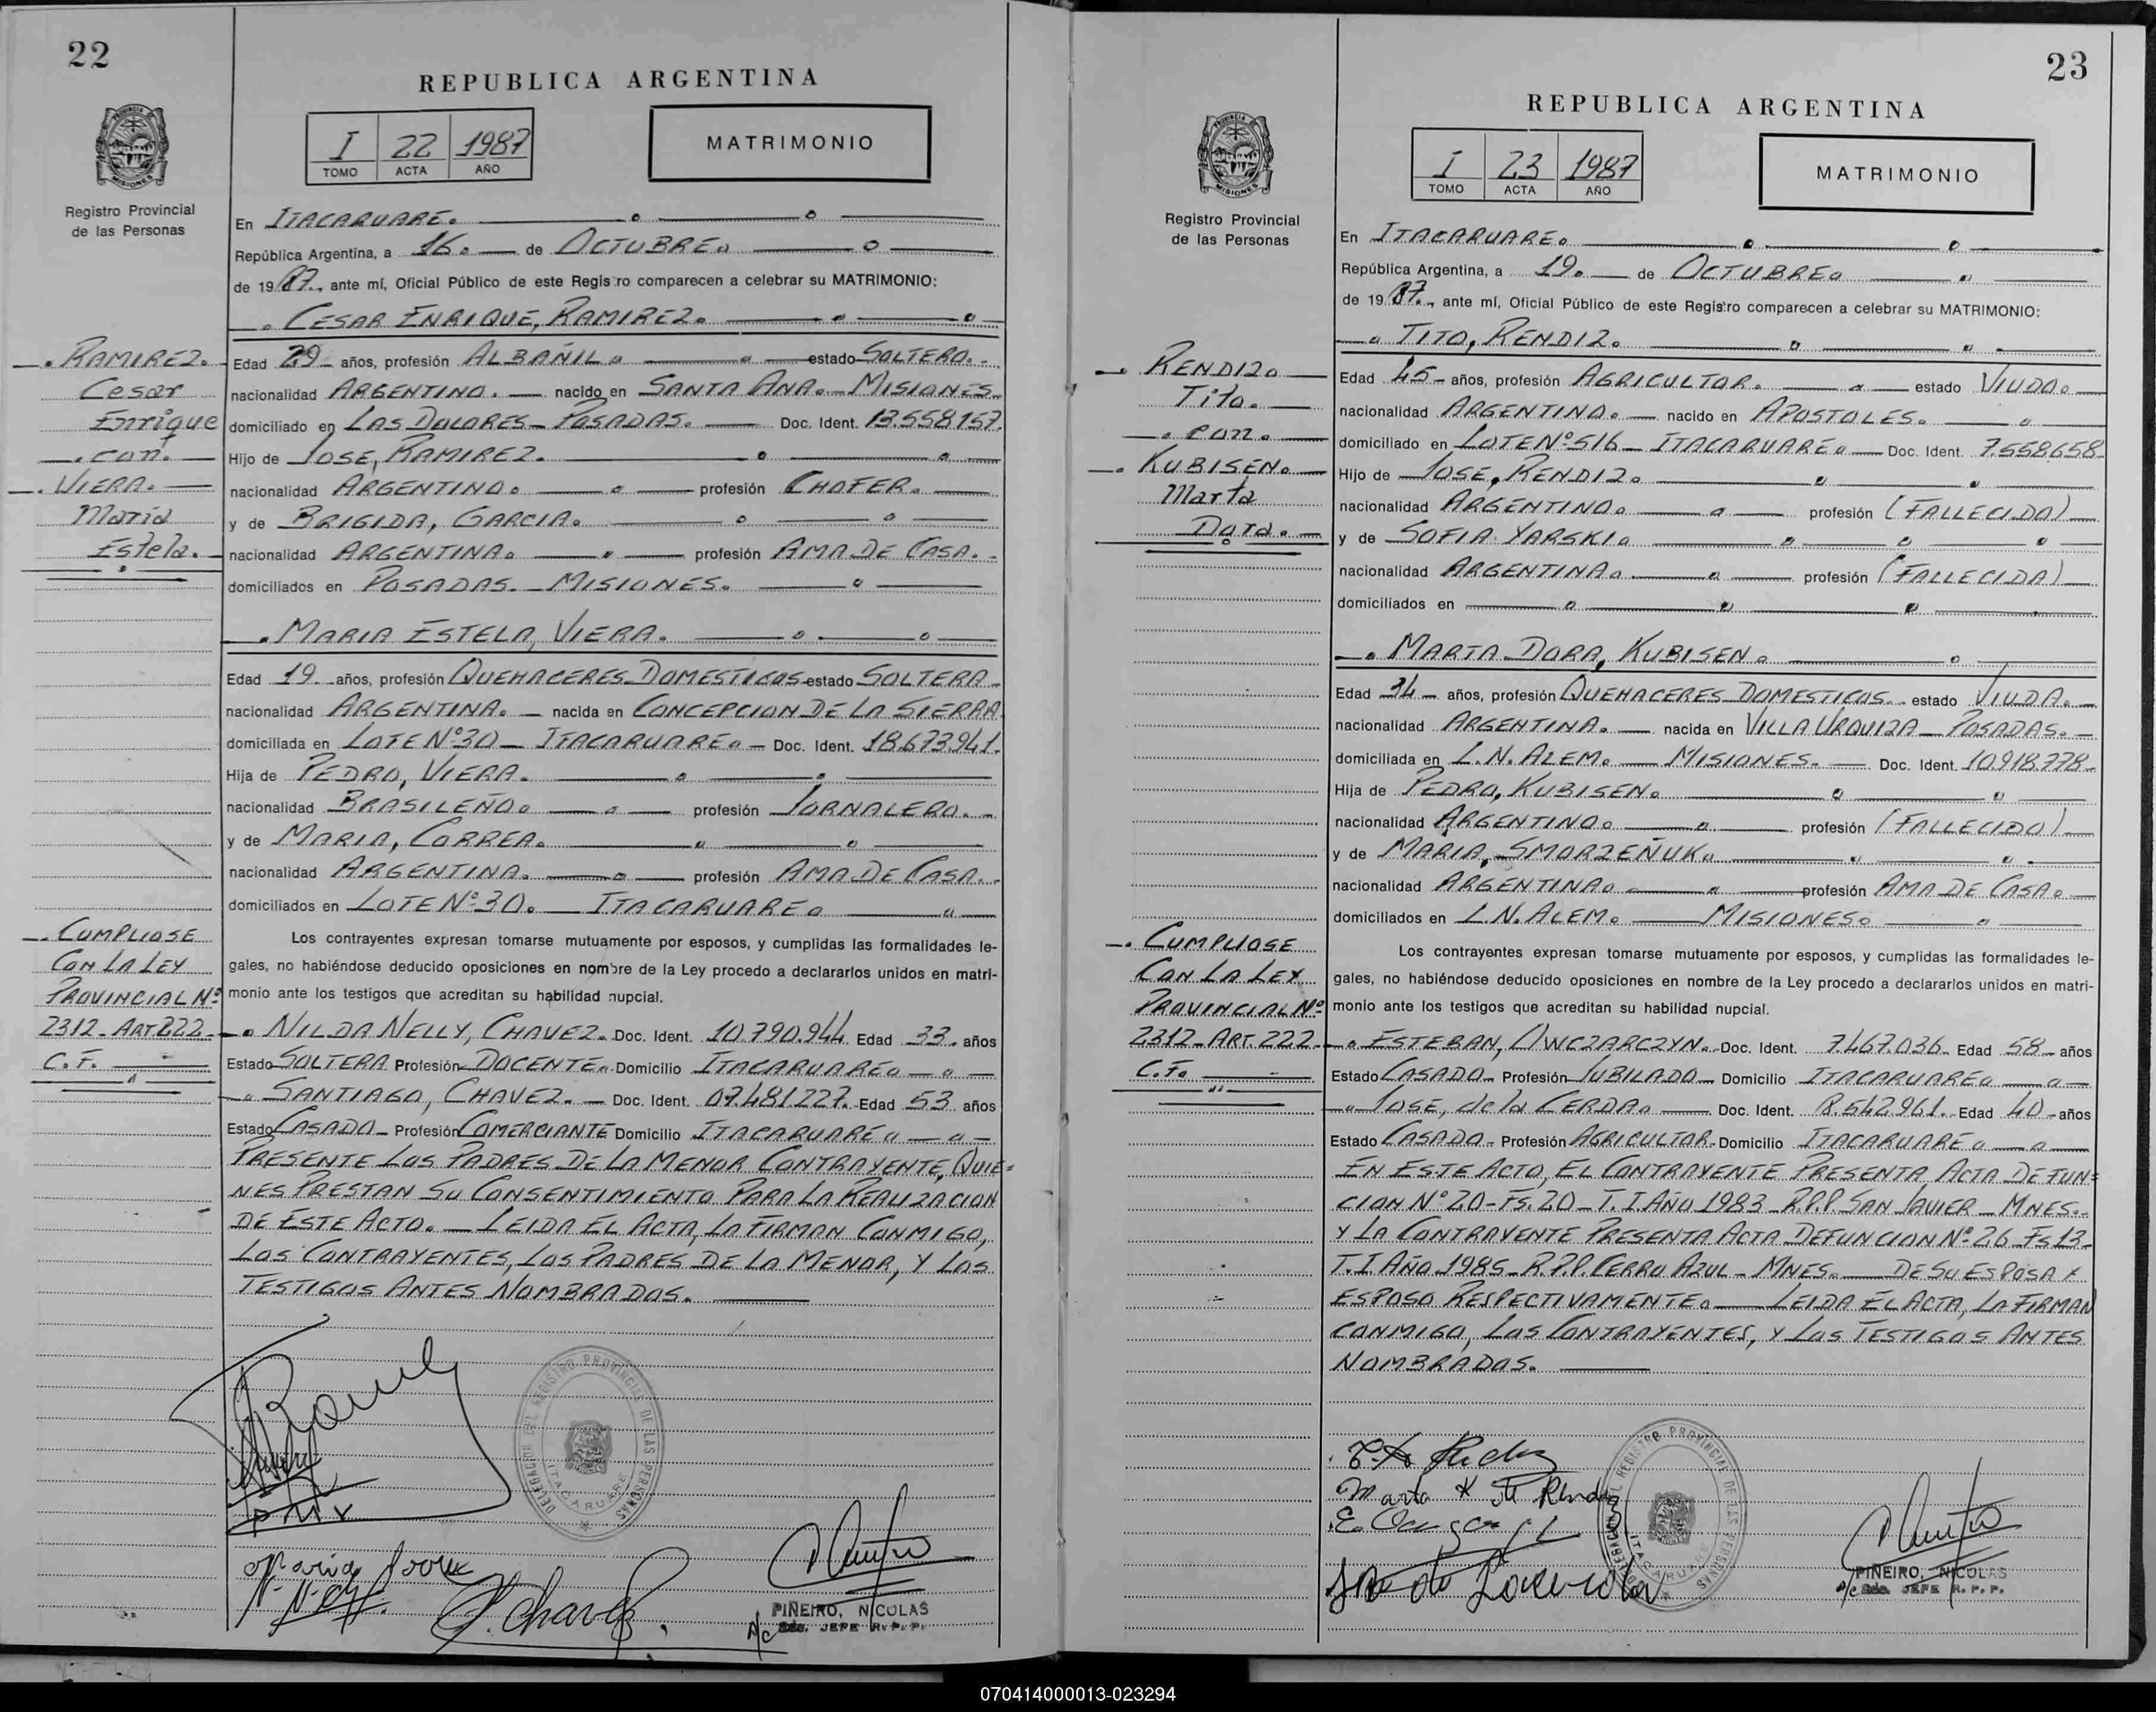 22
REPUBLICA ARGENTINA
I 22 1987
TOMO ACTA AÑO
MATRIMONIO
Registro Provincial
de las Personas
En ITACARUARE.
República Argentina, a 16. de OCTUBRE.
de 1987., ante mí, Oficial Público de este Registro comparecen a celebrar su MATRIMONIO:
CESAR ENRIQUE, RAMIREZ.
RAMIREZ.
Cesar
Enrique
con.
VIERA.
Maria
Estela.
Edad 29 años, profesión ALBAÑIL estado SOLTERO.
nacionalidad ARGENTINO. nacido en SANTA ANA. MISIONES
domiciliado en LAS DOLORES - POSADAS. Doc. Ident. 13.558.157.
Hijo de JOSE, RAMIREZ.
nacionalidad ARGENTINO. profesión CHOFER.
y de BRIGIDA, GARCIA.
nacionalidad ARGENTINA. profesión AMA DE CASA.
domiciliados en POSADAS. MISIONES.
MARIA ESTELA, VIERA.
Edad 19 años, profesión QUEHACERES DOMESTICOS estado SOLTERA
nacionalidad ARGENTINA. nacida en CONCEPCION DE LA SIERRA
domiciliada en LOTE Nº30 - ITACARUARE. Doc. Ident. 18.673.941.
Hija de PEDRO, VIERA.
nacionalidad BRASILEÑO. profesión JORNALERO.
y de MARIA, CORREA.
nacionalidad ARGENTINA. profesión AMA DE CASA.
domiciliados en LOTE Nº30. ITACARUARE.
CUMPLIOSE
CON LA LEY
PROVINCIAL Nº
2312-ART.222.
C.F.
Los contrayentes expresan tomarse mutuamente por esposos, y cumplidas las formalidades le-
gales, no habiéndose deducido oposiciones en nombre de la Ley procedo a declararlos unidos en matri-
monio ante los testigos que acreditan su habilidad nupcial.
NILDA NELLY, CHAVEZ. Doc. Ident. 10.790.944. Edad 33. años
Estado SOLTERA Profesión DOCENTE. Domicilio ITACARUARE.
SANTIAGO, CHAVEZ. Doc. Ident. 07.481.227. Edad 53 años
Estado CASADO Profesión COMERCIANTE Domicilio ITACARUARE
PRESENTE LOS PADRES DE LA MENOR CONTRAYENTE, QUIE=
NES PRESTAN SU CONSENTIMIENTO PARA LA REALIZACION
DE ESTE ACTO. LEIDA EL ACTA, LA FIRMAN CONMIGO,
LOS CONTRAYENTES, LOS PADRES DE LA MENOR, Y LOS
TESTIGOS ANTES NOMBRADOS.
DELEGACION DEL REGISTRO PROVINCIAL DE LAS PERSONAS
ITACARUARE
S. Chavez
PIÑEIRO, NICOLAS
A/C Sdo. JEFE R. P. P.
23
REPUBLICA ARGENTINA
I 23 1987
TOMO ACTA AÑO
MATRIMONIO
Registro Provincial
de las Personas
En ITACARUARE.
República Argentina, a 19. de OCTUBRE.
de 1987., ante mí, Oficial Público de este Registro comparecen a celebrar su MATRIMONIO:
TITO, RENDIZ.
RENDIZ.
Tito.
con.
KUBISEN.
Marta
Dora.
Edad 45 años, profesión AGRICULTOR. estado VIUDO.
nacionalidad ARGENTINO. nacido en APOSTOLES.
domiciliado en LOTE Nº516 - ITACARUARE. Doc. Ident. 7.558.658
Hijo de JOSE, RENDIZ.
nacionalidad ARGENTINO. profesión (FALLECIDO)
y de SOFIA YARSKI.
nacionalidad ARGENTINA. profesión (FALLECIDA)
domiciliados en
MARTA DORA, KUBISEN.
Edad 34 años, profesión QUEHACERES DOMESTICOS. estado VIUDA.
nacionalidad ARGENTINA. nacida en VILLA URQUIZA - POSADAS.
domiciliada en L.N. ALEM. MISIONES. Doc. Ident. 10.918.778
Hija de PEDRO, KUBISEN.
nacionalidad ARGENTINO. profesión (FALLECIDO)
y de MARIA, SMORZEÑUK.
nacionalidad ARGENTINA. profesión AMA DE CASA.
domiciliados en L.N. ALEM. MISIONES.
CUMPLIOSE
CON LA LEY
PROVINCIAL Nº
2312-ART.222.
C.F.
Los contrayentes expresan tomarse mutuamente por esposos, y cumplidas las formalidades le-
gales, no habiéndose deducido oposiciones en nombre de la Ley procedo a declararlos unidos en matri-
monio ante los testigos que acreditan su habilidad nupcial.
ESTEBAN, OWCZARCZYN. Doc. Ident. 7.467.036. Edad 58 años
Estado CASADO Profesión JUBILADO Domicilio ITACARUARE.
JOSE, de la CERDA. Doc. Ident. 8.542.961. Edad 40 años
Estado CASADO Profesión AGRICULTOR Domicilio ITACARUARE
EN ESTE ACTO, EL CONTRAYENTE PRESENTA, ACTA DEFUN=
CION Nº20-FS.20-T.I.AÑO 1983 R.P.P. SAN JAVIER - MNES.
Y LA CONTRAYENTE PRESENTA ACTA DEFUNCION Nº26 FS 13
T.I AÑO 1985 R.P.P. CERRO AZUL - MNES. DE SU ESPOSA Y
ESPOSO RESPECTIVAMENTE. LEIDA EL ACTA, LA FIRMAN
CONMIGO, LOS CONTRAYENTES, Y LOS TESTIGOS ANTES
NOMBRADOS.
DELEGACION DEL REGISTRO PROVINCIAL DE LAS PERSONAS
ITACARUARE
PIÑEIRO, NICOLAS
A/C Sdo. JEFE R. P. P.
070414000013-023294